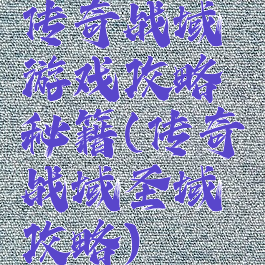 传奇战域
游戏攻略
秘籍(传奇
战域圣域
攻略)